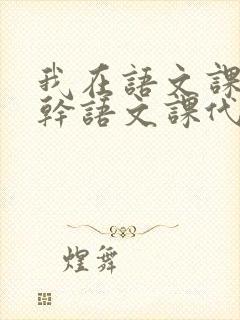 我在語文課
幹語文課代
煌舞